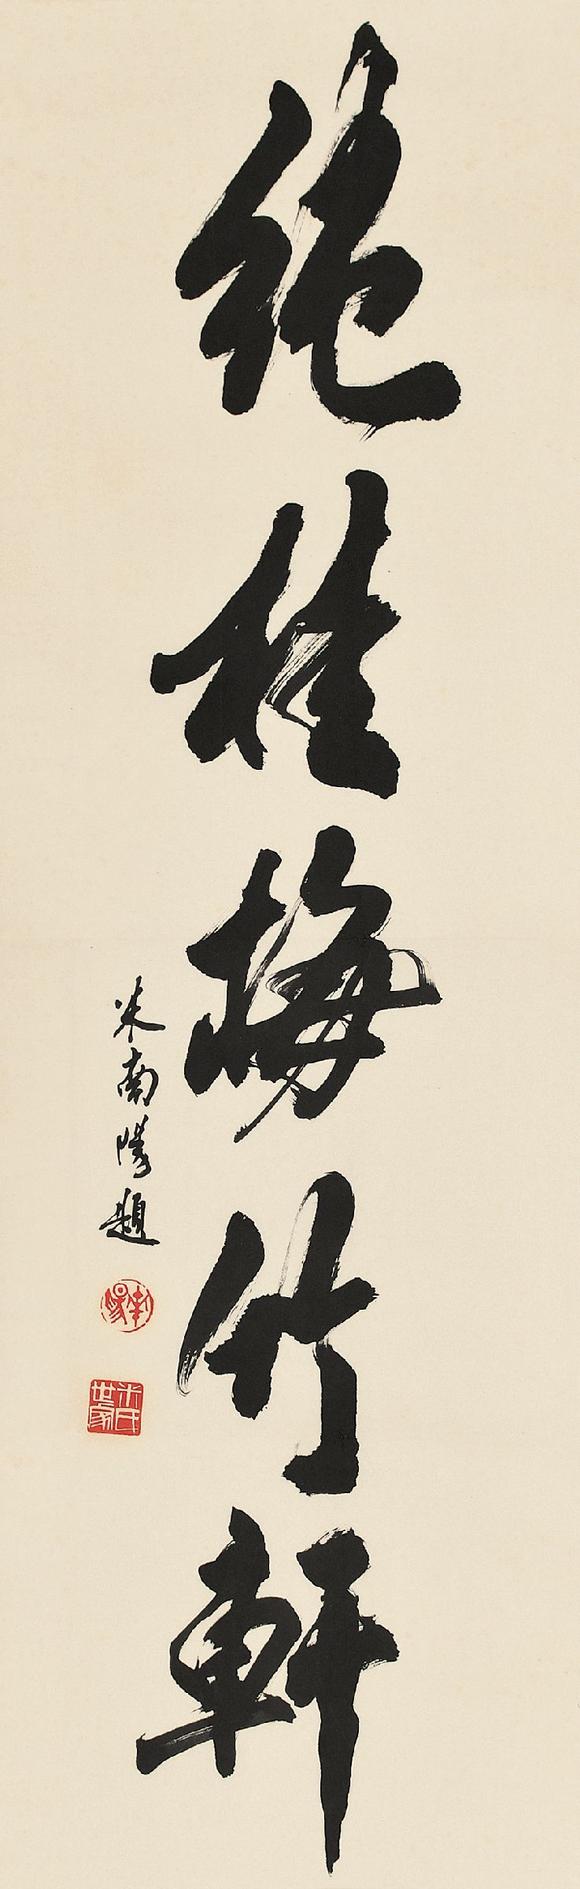 絶桂梅竹軒
米南陽題
南陽
米氏世家